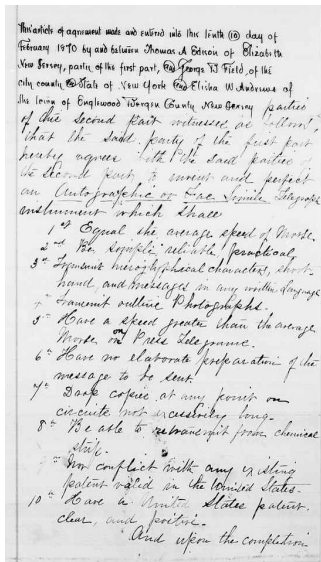 This article of agreement made and entered into this tenth (10) day of
February 1870 by and between Thomas A Edison of Elizabeth
New Jersey, party of the first part, and George W Field, of the
city county and State of New York and Elisha W Andrews of
the town of Englewood Bergen County New Jersey parties
of the second part witnesses, as follows,
that the said party of the first part
hereby agrees with the said parties of
the second part to invent and perfect
an Autographic or Fac Simile Telegraph
instrument which shall
1st Equal the average speed of Morse.
2nd Be simple, reliable, practical,
3rd Transmit hieroglyphical characters, short
hand, and messages in any written language
4th Transmit outline Photographs.
5th Have a speed greater than the average
Morse, on Press Telegrams.
6th Have no elaborate preparation of the
message to be sent.
7th Drop copies at any point on
circuits not excessively long.
8th Be able to retransmit from chemical
strip.
9th Non conflict with any existing
patent valid in the United States.
10th Have a United States patent.
clear, and positive.
And upon the completion